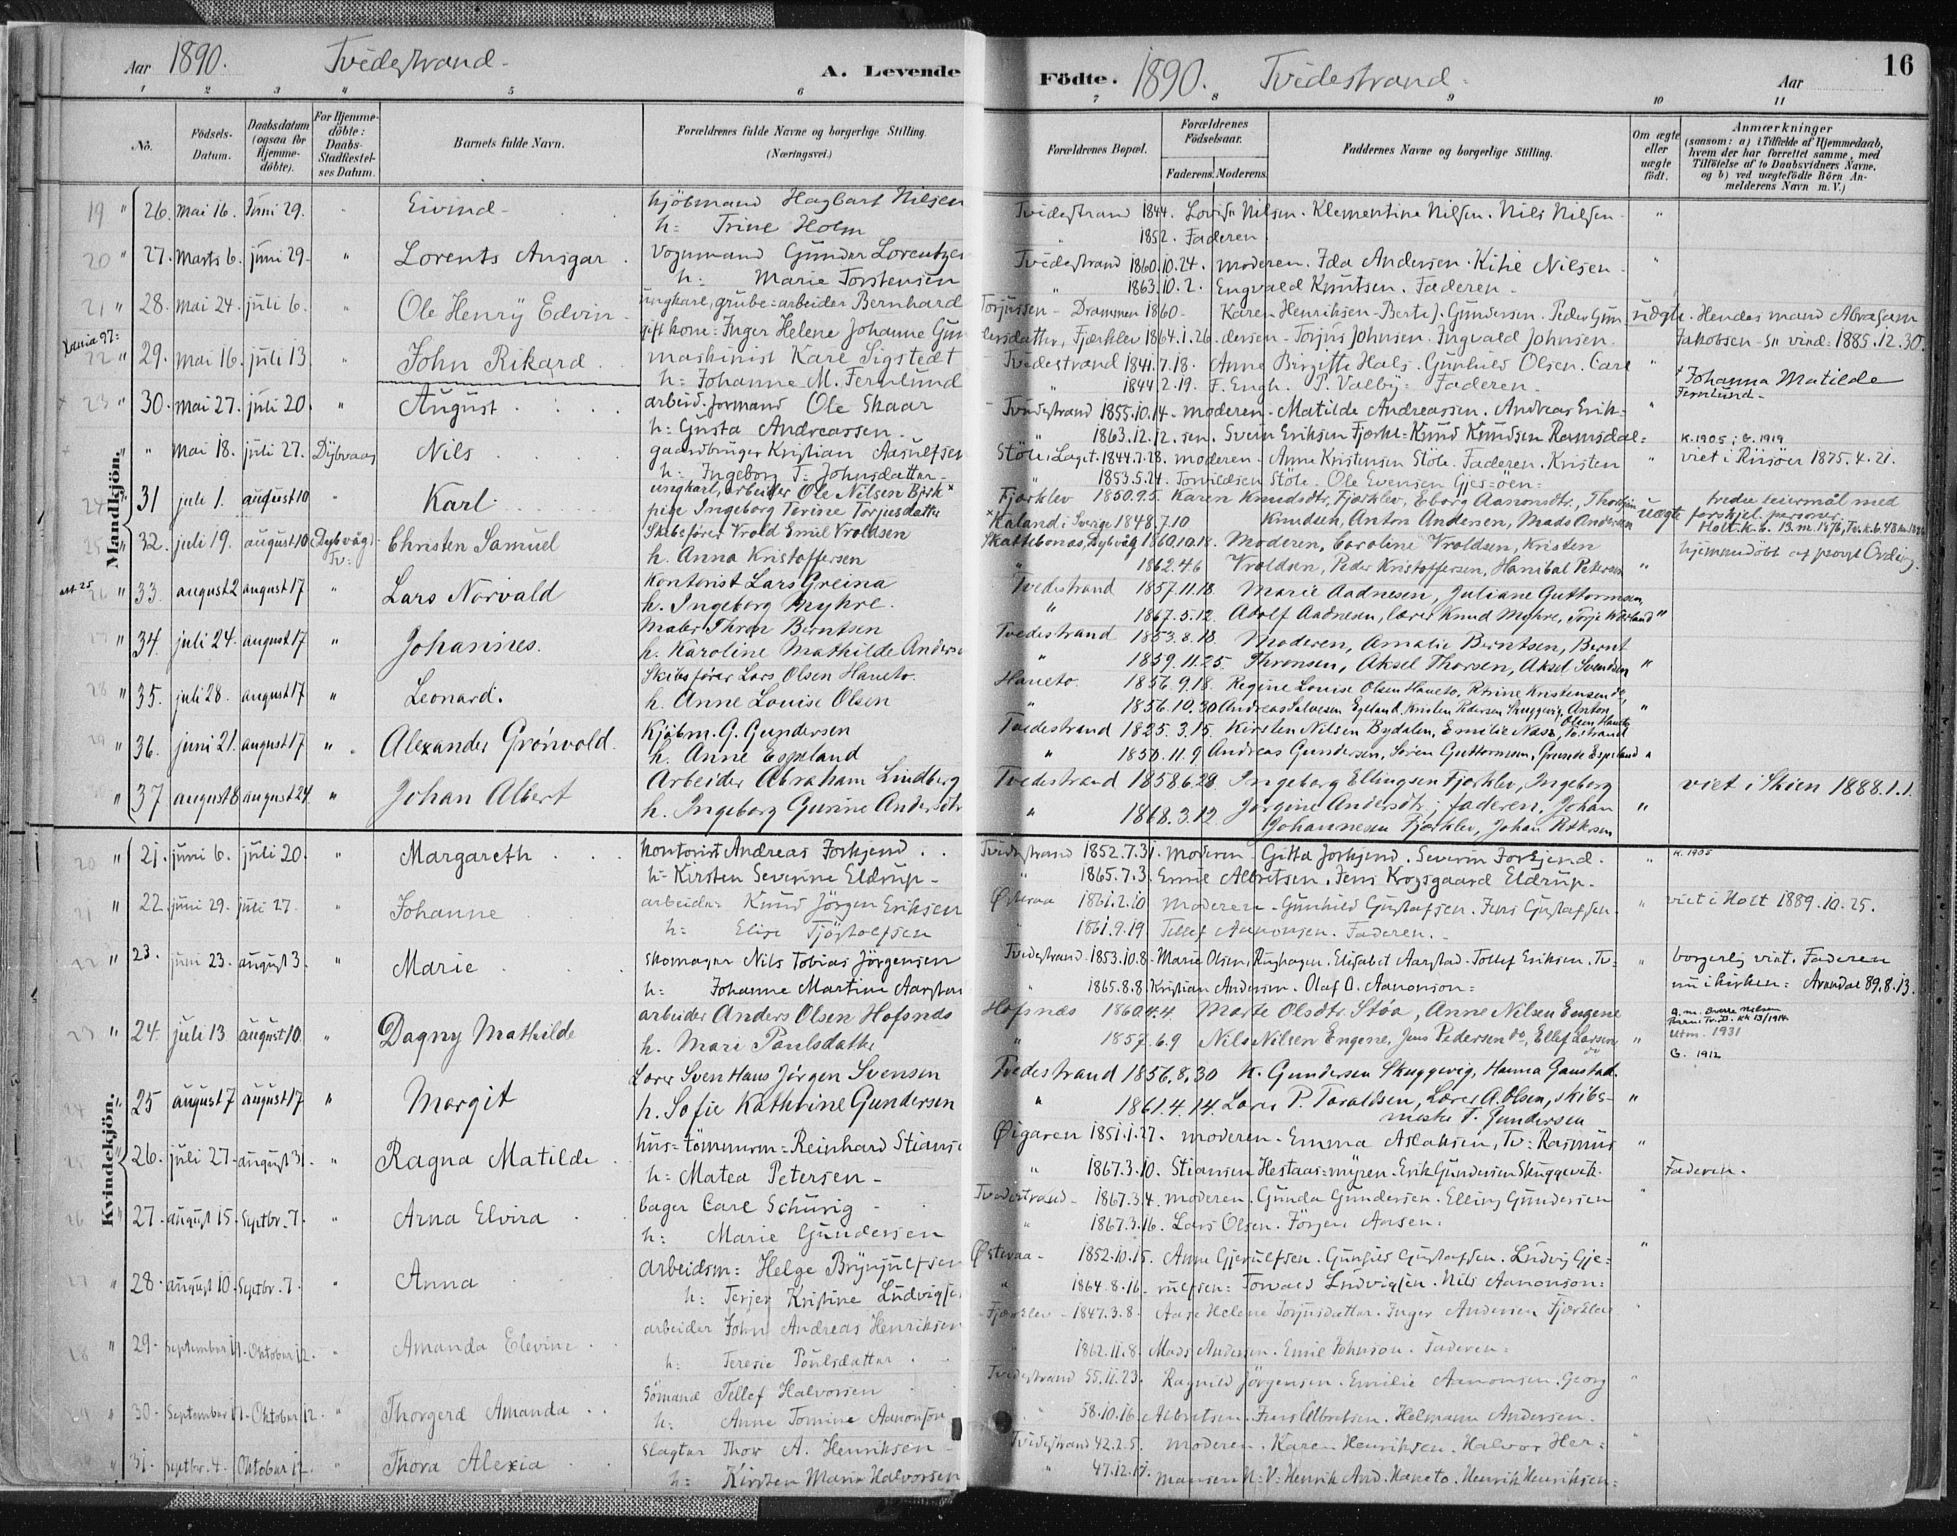 Aar 1890. Tvedestrand. A. Levende Födte. 1890. Tvedestrand. Aar 16
1 2 3 4 5 6 7 8 9 10 11
No. Födsels-Datum. Daabsdatum (ogsaa for Hjemme-döbte). For Hjemme-döbte: Daabs-Stadfæstel-ses Datum. Barnets fulde Navn. Forældrenes fulde Navne og borgerlige Stilling. (Næringsvei.) Forældrenes Bopæl. Forældrenes Födselsaar. Faderens. Moderens. Faddernes Navne og borgerlige Stilling. Om ægte eller uægte födt. Anmærkninger (saasom: a) i Tilfælde af Hjemmedaab, hvem der har forrettet samme, med Tilföielse af to Daabsvidners Navne, og b) ved uægtefödte Börn Anmelderens Navn m. V.)
Mandkjön.
19 " 26. Mai 16. Juni 29. Eivind kjöbmand Hagbart Nilsen Tvedestrand 1844. Lovise Nilsen. Klementine Nilsen. Nils Nilsen "
h: Trine Holm " 1852. Faderen.
20 " 27. Marts 6. juni 29. " Lorents Ansgar vognmand Gunder Lorentzen Tvedestrand 1860.10.24. moderen. Ida Andersen. Kitie Nilsen "
h: Marie Torstensen " 1863.10.2. Engvald Knutsen. Faderen.
21 " 28. Mai 24. juli 6. " Ole Henry Edvin ungkarl, grube=arbeider Bernhard Torjussen - Drammen 1860 Karen Henriksen. Berte J. Gundersen. Peder Gun uægte. Hendes mand Abraham
gift kone: Inger Helene Johanne Gun dersdatter, Fjærklev 1864.1.26. dersen. Torjus Johnsen. Ingvald Johnsen. Jakobsen 1885.12.30.
22 " 29. Mai 16. juli 13. John Rikard maskinist Karl Sigstedt Tvedestrand 1841.7.18. Anne Birgitte Hals. Gunhild Olsen. Carl "
h: Johanne M. Fernlund " 1844.2.19. F. Engh. P. Valby. Faderen. Johanna Matilde Fernlund
23 " 30. Mai 27. juli 20. " August arbeid. formand Ole Skaar Tvedestrand 1855.10.14. moderen. Matilde Andreassen. Andreas Erik= "
h: Gusta Andreassen 1863.12.12. sen. Svein Eriksen Fjærkl= Knud Knudsen Ramsdal= K. 1905; G. 1919
" Mai 18. juli 27. Dybvaag Nils gaardbruger Kristian Aasulfsen Støle, Laget. 1844.7.28. moderen. Anne Kristensen Støle. Faderen. Kristen " viet i Risøer 1875.4.21.
h: Ingeborg T. Johnsdatter 1853.5.24. Torvildsen Støle. Ole Evensen Gjes=öen=
24 " 31 juli 1. august 10 " Karl ungkarl, arbeider Ole Nilsen Björk Fjærklev 1850.9.5. Karen Knudsdtr, Fjærklev, Eborg Aanonsdtr., uægte tredie leiermål med
pige Ingeborg Terine Torjusdatter Kaland i Sverige 1848.7.10 Knudsen, Anton Andersen, Mads Andersen forskjel. personer
25 " 32. juli 19. august 10 (Dybvåg) Tv: Christen Samuel Skibsfører Vrold Emil Vroldsen Skattebonæs, Dybvåg 1860.10.18. Moderen, Caroline Vroldsen, Kristen hjemmedøbt af provst
h. Anna Kristoffersen " 1862.4.6 Vroldsen, Peder Kristoffersen, Hanibal Petersen "
26 " 33. august 2 august 17. " Lars Norvald Kontorist Lars Greina Tvedestrand 1857.11.18 Marie Aadnesen, Juliane Guttormsen
h. Ingeborg Myhre. " 1867.5.12 Adolf Aadnesen, lærer Knud Myhre, "
27 " 34. juli 24. august 17 " Johannes. Maler Thron Berntsen Tvedestrand 1853.8.18 Moderen, Amalie Berntsen, Bernt
h. Karoline Mathilde Anders " 1859.11.25. Thronsen, Aksel Thorsen, Aksel Svendsen "
28 " 35. juli 28. august 17 " Leonard. Skibsfører Lars Olsen Haneto. Haneto. 1856.9.18. Regine Louise Olsen Haneto, Kristensen do,
h. Anne Louise Olsen " 1856.10.30 Andreas Salvesen Egeland, Kristen Pedersen Skuggevig, Anton Olsen, Haneto "
29 " 36. juni 21. august 17 " Alexander Grønvold. Kjøbm. G. Gundersen Tvedestrand 1825.3.15. Kirsten Nilsen Bydalen, Emilie Næss, Tvestrand
h. Anne Espeland " 1850.11.9 Andreas Gundersen, Søren Guttormsen, Gunde Espeland "
" 37 august 8 august 24 " Johan Albert Arbeider Abraham Lindberg Tvedestrand 1858.6.28 Ingeborg Ellingsen Fjærklev, Ingeborg viet i Skien 1888.1.1.
h. Ingeborg Gurine Andersdtr " 1868.3.12 Jørgine Andersdtr, faderen, Johan "
Johannesen Fjærklev, Johan
Kvindekjön.
20 " 21. juni 6. juli 20. " Margareth kontorist Andreas Forkjend Tvedestrand 1852.7.31. moderen. Gitta Forkjend. Severin Forkjend. " K. 1905
h: Kirsten Severine Eldrup " 1865.7.3. Emil Albretsen. Jens Krogsgaard Eldrup.
21 " 22. juni 29. juli 27. " Johanne arbeider Knud Jörgen Eriksen Østeraa 1861.2.10 moderen. Gunhild Gustafsen. Jens Gustafsen. " viet i Holt 1889.10.25.
h: Elise Tjöstolfsen " 1861.9.19 Tellef Aanonsen. Faderen.
22 " 23. juni 23. august 3. " Marie skomager Nils Tobias Jörgensen Tvedestrand 1853.10.8. Marie Olsen, Elisabet Aarstad. Tollef Eriksen. Tv= " borgerlig viet. Faderen
h: Johanne Martine Aarstad 1865.8.8. Kristian Andersen. Olaf O. Aanonson= nu i kirken: Arendal 89.8.13.
23 " 24. juli 13 august 10. " Dagny Mathilde arbeider Anders Olsen Hofsnæs Hofsnæs 1860.4.4. Marte Olsdtr Støa, Anne Nilsen Eugene
h. Mari Paulsdatter " 1857.6.9 Nils Nilsen Engene, Jens Pedersen do, Ellef Larsen do " Utm. 1931
24 " 25 august 7 august 17 " Margit Lærer Sven Hans Jørgen Svensen Tvedestrand 1856.8.30 K. Gundersen Skuggevig, Hanna Ganstad. G. 1912
h. Sofie Kathrine Gundersen " 1861.4.14. Lærer P. Taraldsen, Lærer A. Olsen, skibs- "
T. Gundersen
25 " 26. juli 27. august 31. " Ragna Matilde hus=tömmerm= Reinhard Stians Øigaren 1851.1.27. moderen. Emma Aslaksen, Tv: Rasmus "
h: Matea Petersen " 1867.3.10. Stiansen Hestaas=myren. Erik Gundersen Skuggevik. Faderen.
26 " 27. august 15. Septbr. 7. " Arna Elvira bager Carl Schurig Tvedestrand 1867.3.4. moderen. Gunda Gundersen. Elling Gundersen "
h: Marie Gundersen " 1867.3.16. Lars Olsen. Jörgen Aasen.
27 " 28. august 10. Septbr. 7. " Anna arbeidsm: Helge Brynjulfsen Østeraa 1852.10.15. Anne Gjerulfsen. Gunhild Gustafsen. Ludvig Gje= "
h: Terjer Kristine Ludvigsen " 1864.8.16. rulfsen= Torvald Ludvigsen. Nils Aanonson=
28 " 29. September 11. Oktober 12. " Amanda Elevine arbeider John Andreas Henriksen Fjærklev 1847.3.8. Aase Helene Torjusdatter. Inger Andersen Fjærklev "
h: Teresie Poulsdatter " 1862.11.8. Mads Andersen. Emil Johnson. Faderen=
30. September 11. Oktober 12. " Thorgerd Amanda Sömand Tellef Halvorsen Tvedestrand 55.11.23. Ragnild Jörgensen. Emilie Aanonsen. Georg "
h: Anne Tomine Aanonson " 58.10.16. Albretsen. Jens Albretsen. Helmann Andersen.
31. Septbr. 4. Oktober 12. " Thora Alexia slagter Thor A. Henriksen Tvedestrand 42.2.5. moderen. Karen Henriksen. Halvor Her= "
h: Kirsten Marie Halvorsen " 47.12.17. mansen N: V: Henrik And. Haneto. Henrik Henriksen=